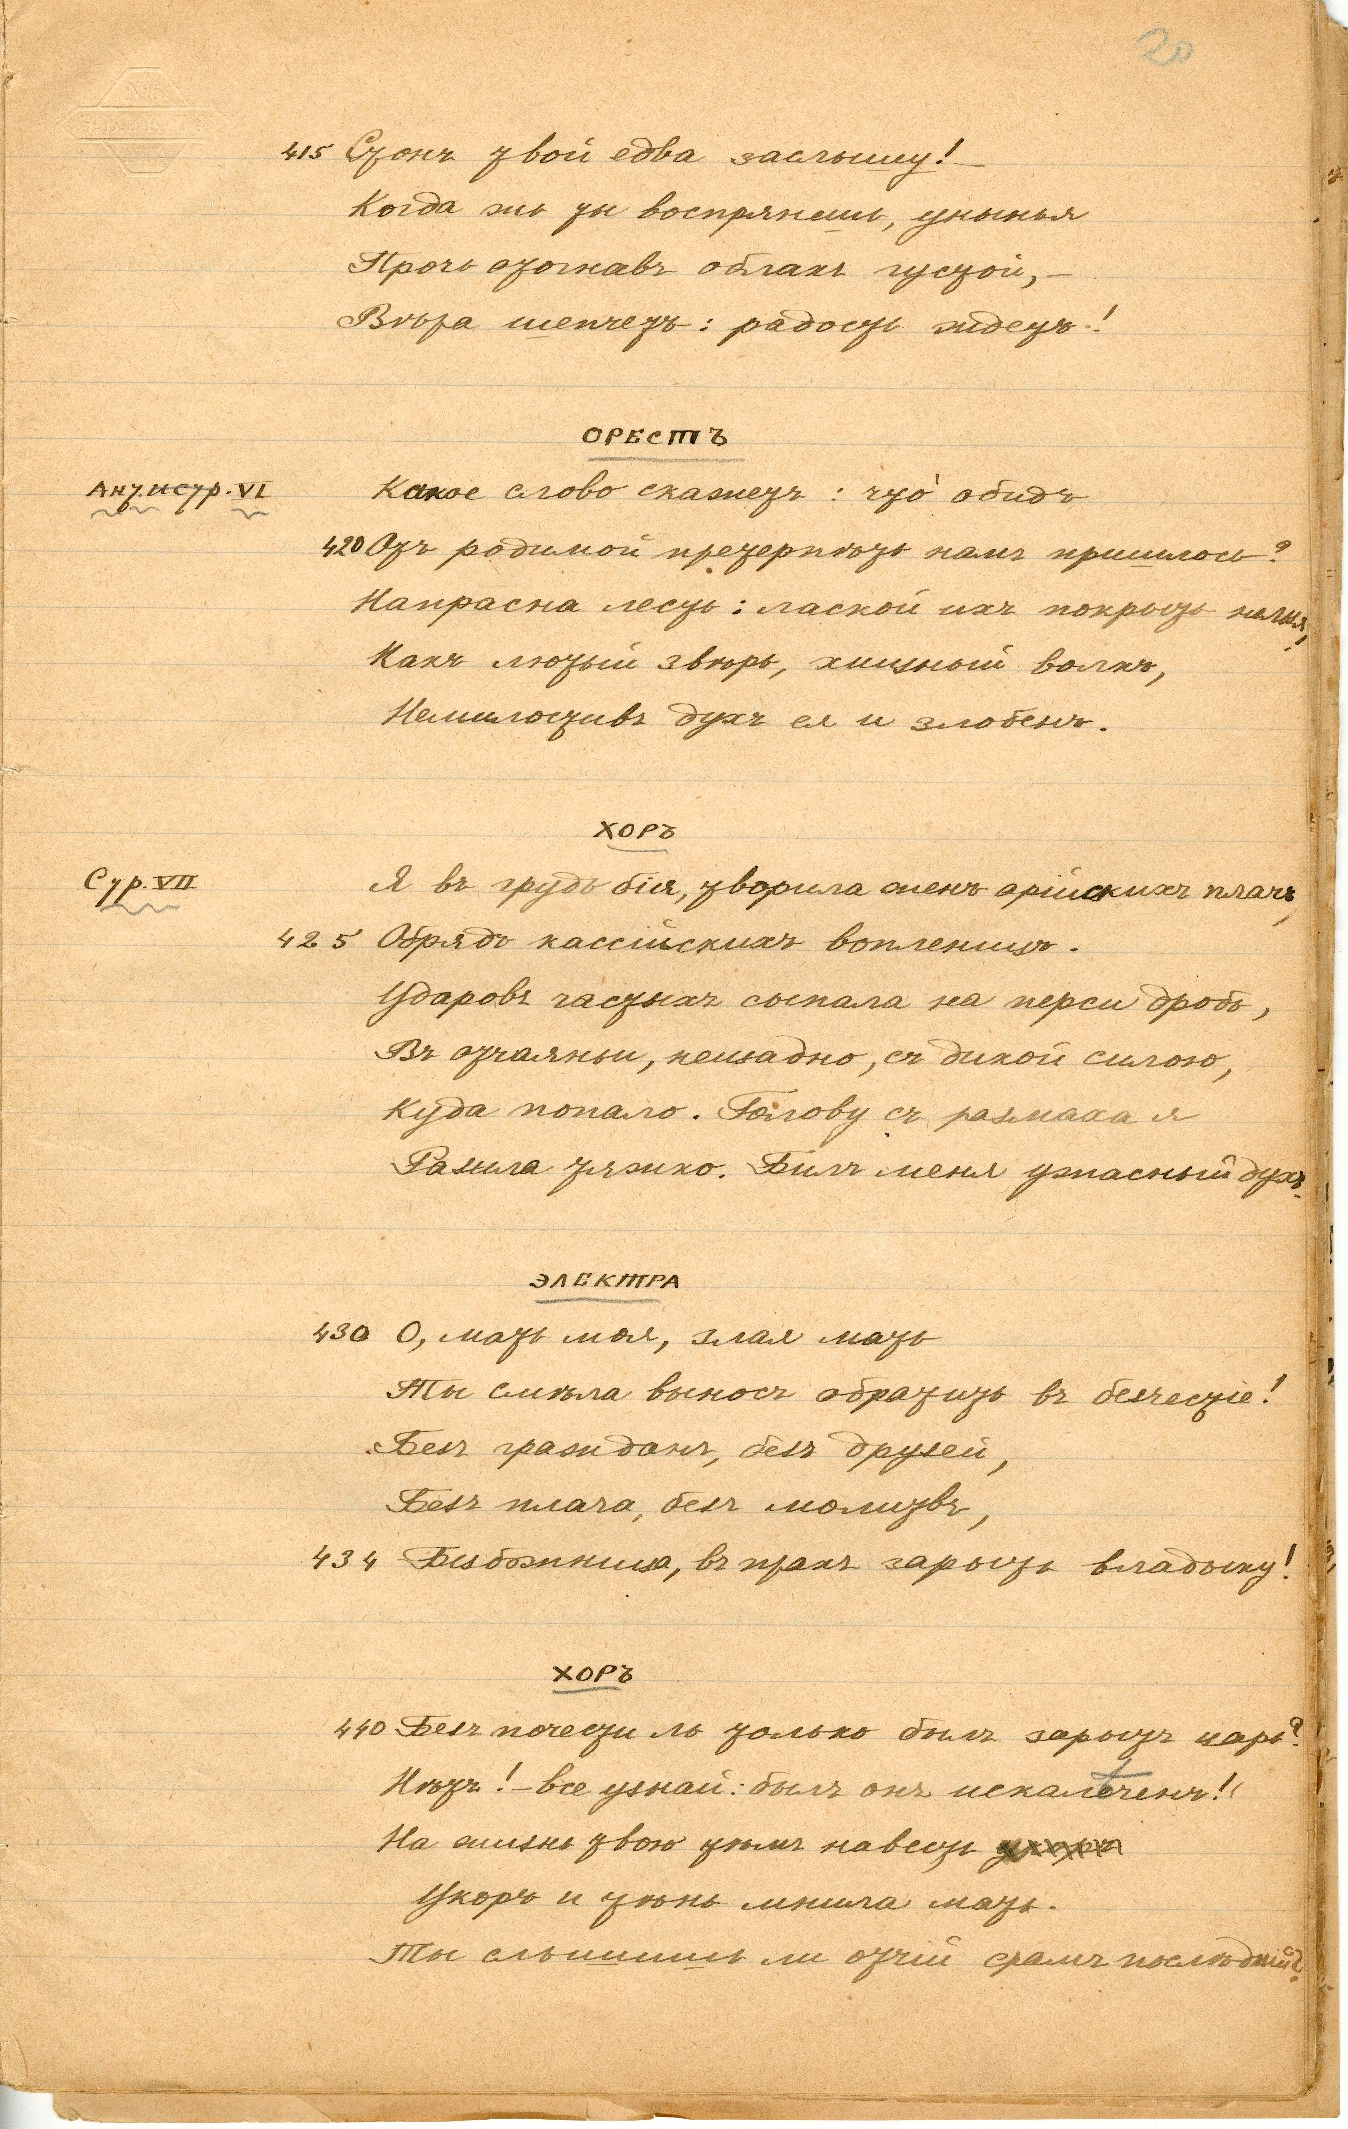 20
415 Стонъ твой едва заслышу! —
Когда жь ты воспрянешь, унынья
Прочь отогнавъ облакъ густой, —
Вѣра шепчетъ: радость ждетъ!
ОРЕСТЪ
Антистр. VI Какое слово скажетъ: что́ обидъ
420 Отъ родимой претерпѣть намъ пришлось?
Напрасна лесть: лаской ихъ покрыть нельзя,
Какъ лютый звѣрь, хищный волкъ,
Немилостивъ духъ ея и злобенъ.
ХОРЪ
Стр. VII Я въ грудь бія, творила женъ арійскихъ плачъ,
425 Обрядъ кассійскихъ вопленицъ.
Ударовъ частыхъ сыпала на перси дробь,
Въ отчаяньи, нещадно, съ дикой силою,
Куда попало. Голову съ размаха я
Разила тяжко. Билъ меня ужасный духъ.
ЭЛЕКТРА
430 О, мать моя, злая мать
Ты смѣла выносъ обратить въ безчестіе!
Безъ гражданъ, безъ друзей,
Безъ плача, безъ молитвъ,
434 Безбожница, въ прахъ зарыть владыку!
ХОРЪ
440 Безъ почести ль только былъ зарытъ царь?
Нѣтъ! — все узнай: былъ онъ искалѣченъ!
На жизнь твою тѣмъ навесть
Укоръ и тѣнь мнила мать.
Ты слышишь ли отчій срамъ послѣдній?